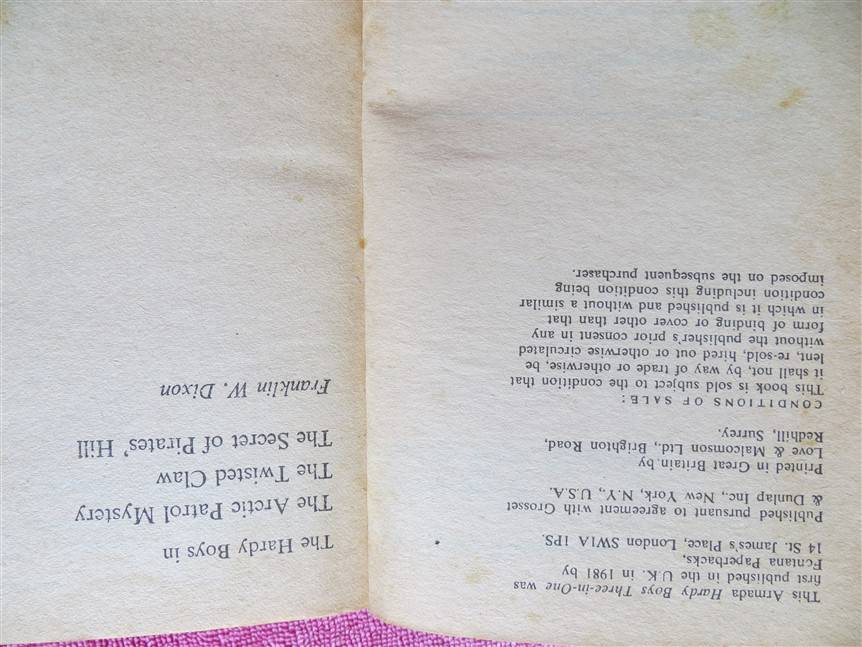 This Armada Hardy Boys Three-in-One was
first published in the U.K. in 1981 by
Fontana Paperbacks,
14 St. James's Place, London SW1A 1PS.
Published pursuant to agreement with Grosset
& Dunlap Inc., New York, N.Y., U.S.A.
Printed in Great Britain by
Love & Malcomson Ltd., Brighton Road,
Redhill, Surrey.
CONDITIONS OF SALE:
This book is sold subject to the condition that
it shall not, by way of trade or otherwise, be
lent, re-sold, hired out or otherwise circulated
without the publisher's prior consent in any
form of binding or cover other than that
in which it is published and without a similar
condition including this condition being
imposed on the subsequent purchaser.
The Hardy Boys in
The Arctic Patrol Mystery
The Twisted Claw
The Secret of Pirates' Hill
Franklin W. Dixon